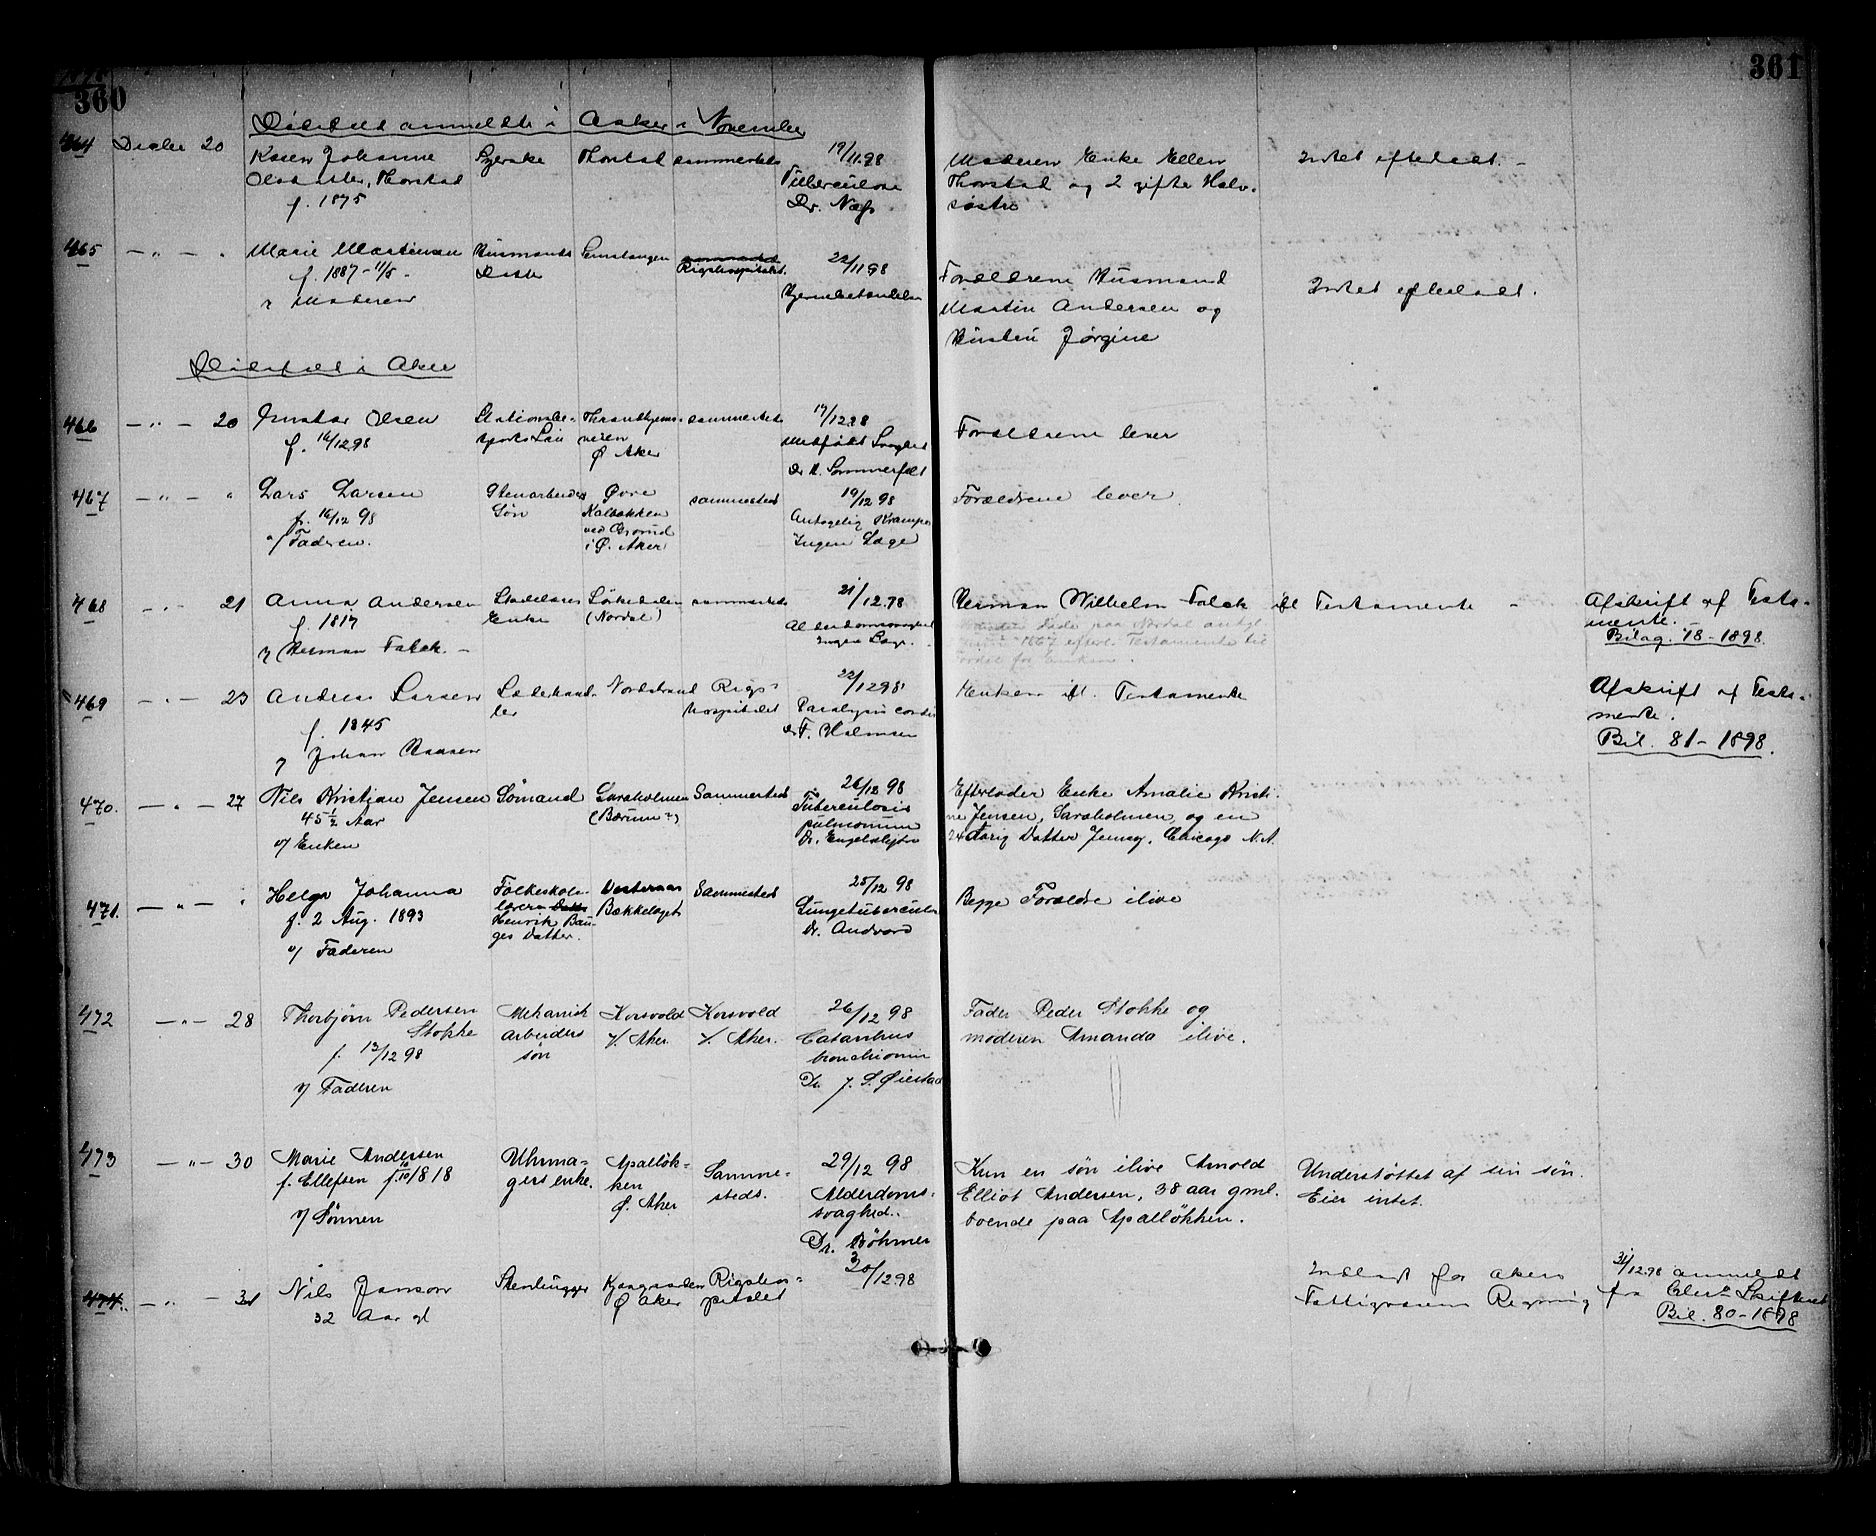 360
361
Dødsfald anmeldte i Asker i November
464 Decbr 20
Karen Johanne
Olsdatter, Thorstad
f. 1875
Syerske
Thorstad
sammesteds
19/11 98
Tuberculose
Dr. Næss
Moderen Enke Ellen
Thorstad og 2 gifte Halv-
søstre
Intet efterladt. -
465 - " - "
Marie Martinsen
f. 1887 - 11/5 -
v Moderen
Husmands
Datter
sammesteds
Rigshospitalet.
22/11 98
Hjernebetændelse
Forældrene Husmand
Martin Andersen og
Hustru Jørgine
Intet efterladt.
Dødsfald i Aker
466 - " - 20
Gustav Olsen
f. 16/12 98
Stationsbe-
tjents Søn
Throndhjems-
veien
Ø Aker
sammesteds
17/12 98
Medfødt Svaghed
Dr A. Sommerfelt
Forældrene lever
467 - " - "
Lars Larsen
f. 16/12 98
v/ Faderen.
Stenarbeiders
Søn
Øvre
Kalbakken
ved Grorud
i Ø. Aker
sammesteds
19/12 98
Antagelig Krampe
Ingen Læge
Forældrene lever.
468 - " - 21
Anna Andersen
f. 1817
v/ Herman Falck. -
Enke
Sørkedalen
(Nordal)
sammesteds
21/12 98
Alderdomssvaghed
Ingen Læge.
Herman Wilhelm Falck ifl Testamente -
paa Nordal
1867 efterl. Testamente til
for Enken.
Afskrift af Testa-
mente.
Bilag. 78-1898.
469 - " - 23
Andreas Larsen
f. 1845
v Johan Hansen
Læderhand-
ler
Nordstrand
Rigs-
hospitalet
22/12 98
Paralysis cordis
Dr F. Holmsen
Enken ifl. Testamente
Afskrift af Testa-
mente.
Bil. 81-1898.
470. - " - 27
Nils Kristian Jensen
45 1/2 Aar
v/ Enken
Sømand
Saraholmen
(Bærum?)
Sammesteds
26/12 98
Tuberculosis
pulmonum
Dr. Engelskjøn
Efterlader Enke Amalie Kristi-
ne Jensen, Saraholmen, og en
24 Aarig Datter Jenny, Chicago N.A.
471. - " - "
Helga Johanna
f. 2 Aug. 1893
v/ Faderen
Folkeskole-
lærer Datter
Henrik Bau-
ges Datter.
Vesteraas
Bækkelaget
Sammesteds
25/12 98
Lungetuberculose
Dr. Andvord
Begge Forældre ilive
472 - " - 28
Thorbjørn Pedersen
Stokke
f. 13/12 98
v/ Faderen
Mekanisk
arbeiders
søn
Korsvold
V. Aker
Korsvold
V. Aker.
26/12 98
Catarrhus
bronchiorum
Dr J. S. Øiestad
Fader Peder Stokke og
moderen Amanda ilive.
473 - " - 30
Marie Andersen
f. Ellefsen f. 10/10 1818
v/ Sønnen
Uhrma-
gers enke.
Apalløk-
ken
Ø. Aker
Samme-
steds.
29/12 98
Alderdoms-
svaghed.
Dr. Bøhmer
Kun en søn ilive Arnold
Elliot Andersen, 38 aar gml.
boende paa Apalløkken.
Understøttet af sin søn.
Eier intet.
474. - " - 31
Nils Janson
32 Aar gl
Stenhugger
Ø Aker
Rigshos-
pitalet
30/12 98
Indlagt for Akers
Fattigvæsens Regning
31/12 98 anmeldt
fra Chra Skifteret
Bil. 80-1898